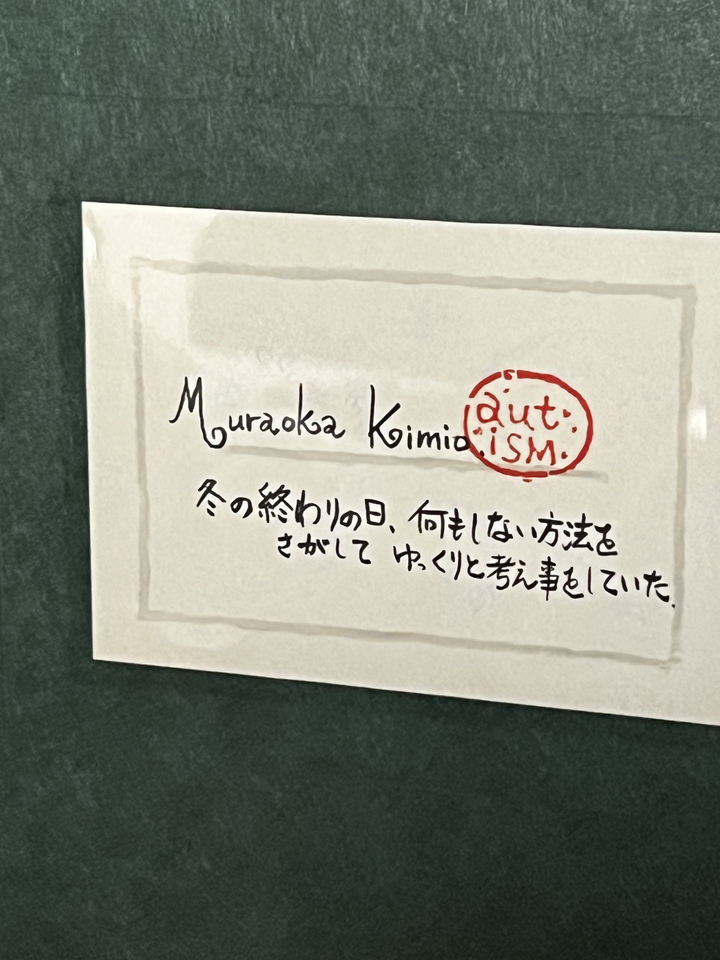 Muraoka Kimio.
aut.
iSM.
冬の終わりの日、何もしない方法を
さがして ゆっくりと考え事をしていた.